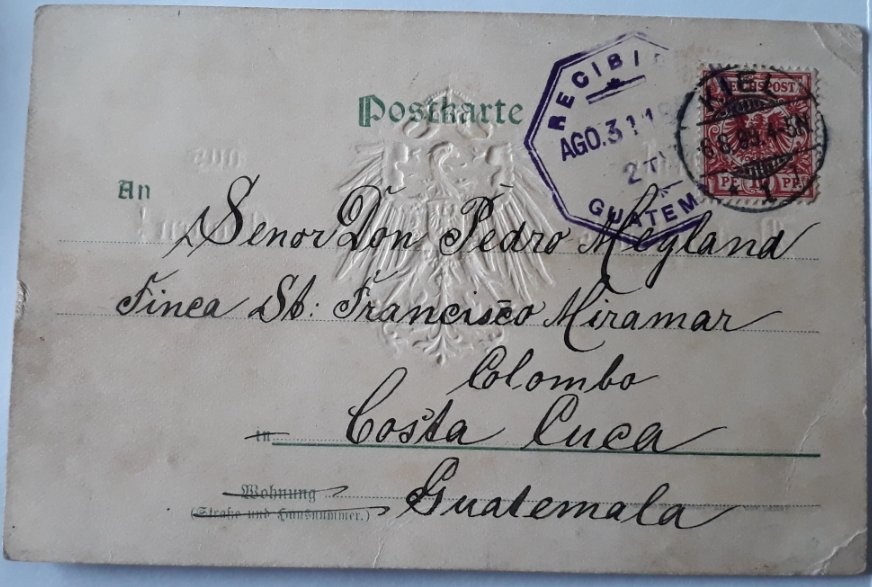 Postkarte
RECIBI
AGO. 31 18
GUATEM
KIEL
REICHSPOST
6.8.99.4-5N
PF 10 PF.
* 1.
An
Senor Don Pedro Megland
Finca St: Francisco Miramar
Colombo
Costa Cuca
in
Wohnung
(Straße und Hausnummer.)
Guatemala